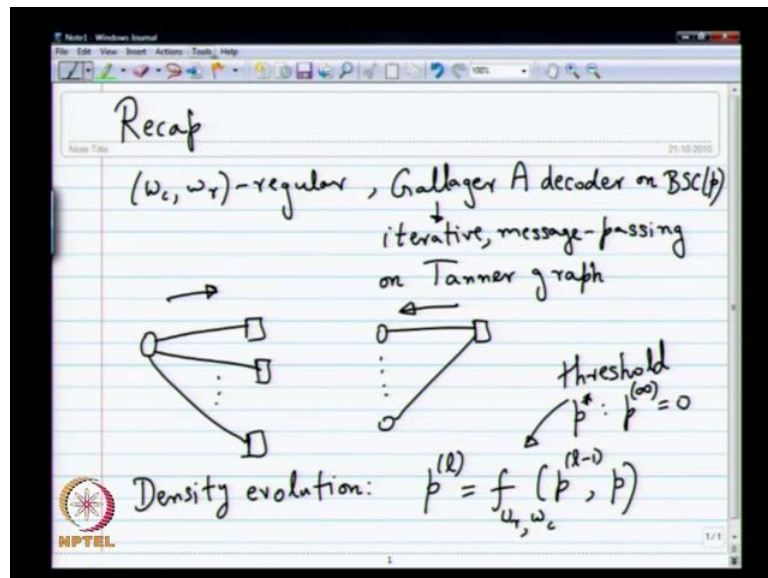 Note1 - Windows Journal
File Edit View Insert Actions Tools Help
100%
Recap
Note Title
21-10-2010
(w_c, w_r)-regular, Gallager A decoder on BSC(p)
iterative, message-passing
on Tanner graph
threshold
p* : p^(∞) = 0
Density evolution: p^(l) = f_{w_r, w_c} (p^(l-1), p)
NPTEL
1/1
1